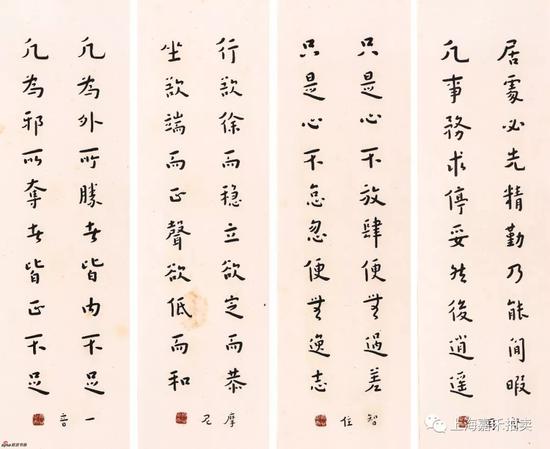 居處必先精勤乃能閒暇
凡事務求停妥然後逍遥
只是心不放肆便無過差
只是心不怠忽便無逸志
智住
行欲徐而穩立欲定而恭
坐欲端而正聲欲低而和
摩尼
凡為外所勝者皆内不足
凡為邪所奪者皆正不足
一音
上海嘉禾拍卖